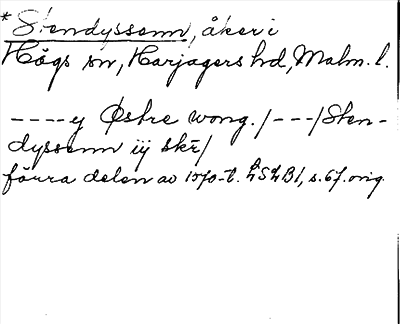 *Stendyssenn, åker i
Högs sn, Harjagers hd, Malm. l.
----y Østre wong. /---/ Sten-
dyssenn iij skr̄/
förra delen av 1570-t. LSLB1, s. 67. orig.